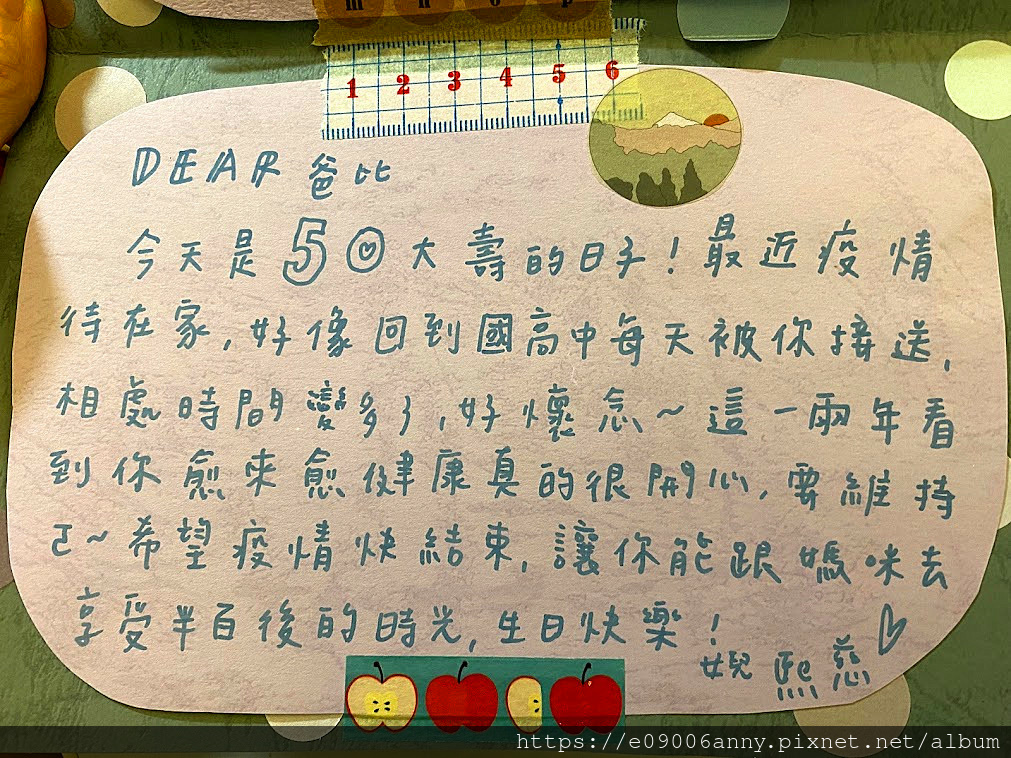 m n o p
1 2 3 4 5 6
DEAR 爸比
今天是50大壽的日子!最近疫情
待在家,好像回到國高中每天被你接送,
相處時間變多了,好懷念~這一兩年看
到你愈來愈健康真的很開心,要維持
ㄛ~希望疫情快結束,讓你能跟媽咪去
享受半百後的時光,生日快樂!
熙慈
https://e09006anny.pixnet.net/album